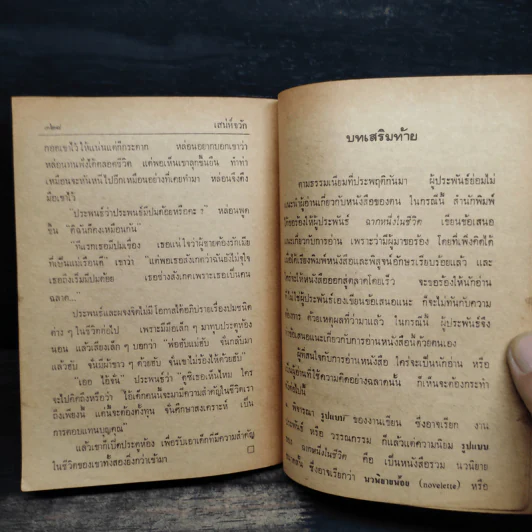 ๓๒๘ เสน่ห์ขวัก
กอดเขาไว้ให้แน่นแต่ก็กระดาก หล่อนอยากบอกเขาว่า
หล่อนทนฟังได้ตลอดชีวิต แต่พอเห็นเขาลุกขึ้นยืน ทำท่า
เหมือนจะหันหนีไปอีกเหมือนอย่างที่เคยทำมา หล่อนจึงดึง
มือเขาไว้
"ประพันธ์ว่าประพันธ์มีปมด้อยหรือคะ ?" หล่อนพูด
ขึ้น "ดิฉันก็คงเหมือนกัน"
"ที่แรกเธอมีปมเขื่อง เธอแน่ใจว่าผู้ชายต้องรักเมีย
ที่เป็นแม่เรือนดี" เขาว่า "แต่พอเธอสังเกตว่าฉันยังไม่จุใจ
เธอถึงเริ่มมีปมด้อย เธออย่างสังเกตเพราะเธอเป็นคน
ฉลาด..."
ประพันธ์และผจงจิตไม่มีโอกาสได้อภิปรายเรื่องปมชนิด
ต่าง ๆ ในชีวิตต่อไป เพราะมีมือเล็ก ๆ มาทุบประตูห้อง
นอน แล้วเสียงเล็ก ๆ บอกว่า "พ่อฮับแม่ฮับ ฉันกลับมา
แล้วฮับ ฉันมีผ้าขาว ๆ ด้วยฮับ ฉันเขาไม่ร้องไห้ด้วยฮับ"
"เออ ไอ้ฉัน" ประพันธ์ว่า "ดูซิเธอเห็นไหม ใคร
จะไปคิดถึงหรือว่า ไอ้เด็กคนนี้จะมามีความสำคัญในชีวิตเรา
ถึงเพียงนี้ แต่นี้จะต้องตั้งทุน ฉันศึกษาสงเคราะห์ เป็น
การตอบแทนบุญคุณ"
แล้วเขาก็เปิดประตูห้อง เพื่อรับเอาเด็กที่มีความสำคัญ
ในชีวิตของเขาทั้งสองยิ่งกว่าเข้ามา
บทเสริมท้าย
ตามธรรมเนียมที่ประพฤติกันมา ผู้ประพันธ์ย่อมไม่
แนะนำผู้อ่านเกี่ยวกับหนังสือของตน ในกรณีนี้ สำนักพิมพ์
ได้ขอร้องให้ผู้ประพันธ์ ฉากหนึ่งในชีวิต เขียนข้อเสนอ
แนะเกี่ยวกับการอ่าน เพราะว่ามีผู้มาขอร้อง โดยที่เพิ่งคิดได้
เมื่อได้เรียงพิมพ์หนังสือและพิสูจน์อักษรเรียบร้อยแล้ว และ
ใคร่จะให้หนังสือออกสู่ตลาดโดยเร็ว จะขอร้องให้นักอ่าน
ที่ไม่ใช่ผู้ประพันธ์เองเขียนข้อเสนอแนะ ก็จะไม่ทันกับความ
ต้องการ ด้วยเหตุผลที่ว่ามาแล้ว ในกรณีนี้ ผู้ประพันธ์จึง
ข้อเสนอแนะเกี่ยวกับการอ่านหนังสือนี้ด้วยตนเอง
ผู้สนใจกับการอ่านหนังสือ ใคร่จะเป็นนักอ่าน หรือ
เป็นผู้อ่านที่ใช้ความคิดอย่างฉลาดคนนั้น ก็เห็นจะต้องกระทำ
ต่อไปนี้
พิจารณา รูปแบบ ของงานเขียน ซึ่งอาจเรียก งาน
ประพันธ์ หรือ วรรณกรรม ก็แล้วแต่ความนิยม รูปแบบ
ของ ฉากหนึ่งในชีวิต คือ เป็นหนังสือรวม นวนิยาย
ขนาดสั้น ซึ่งอาจเรียกว่า นวนิยายน้อย (novelette) หรือ